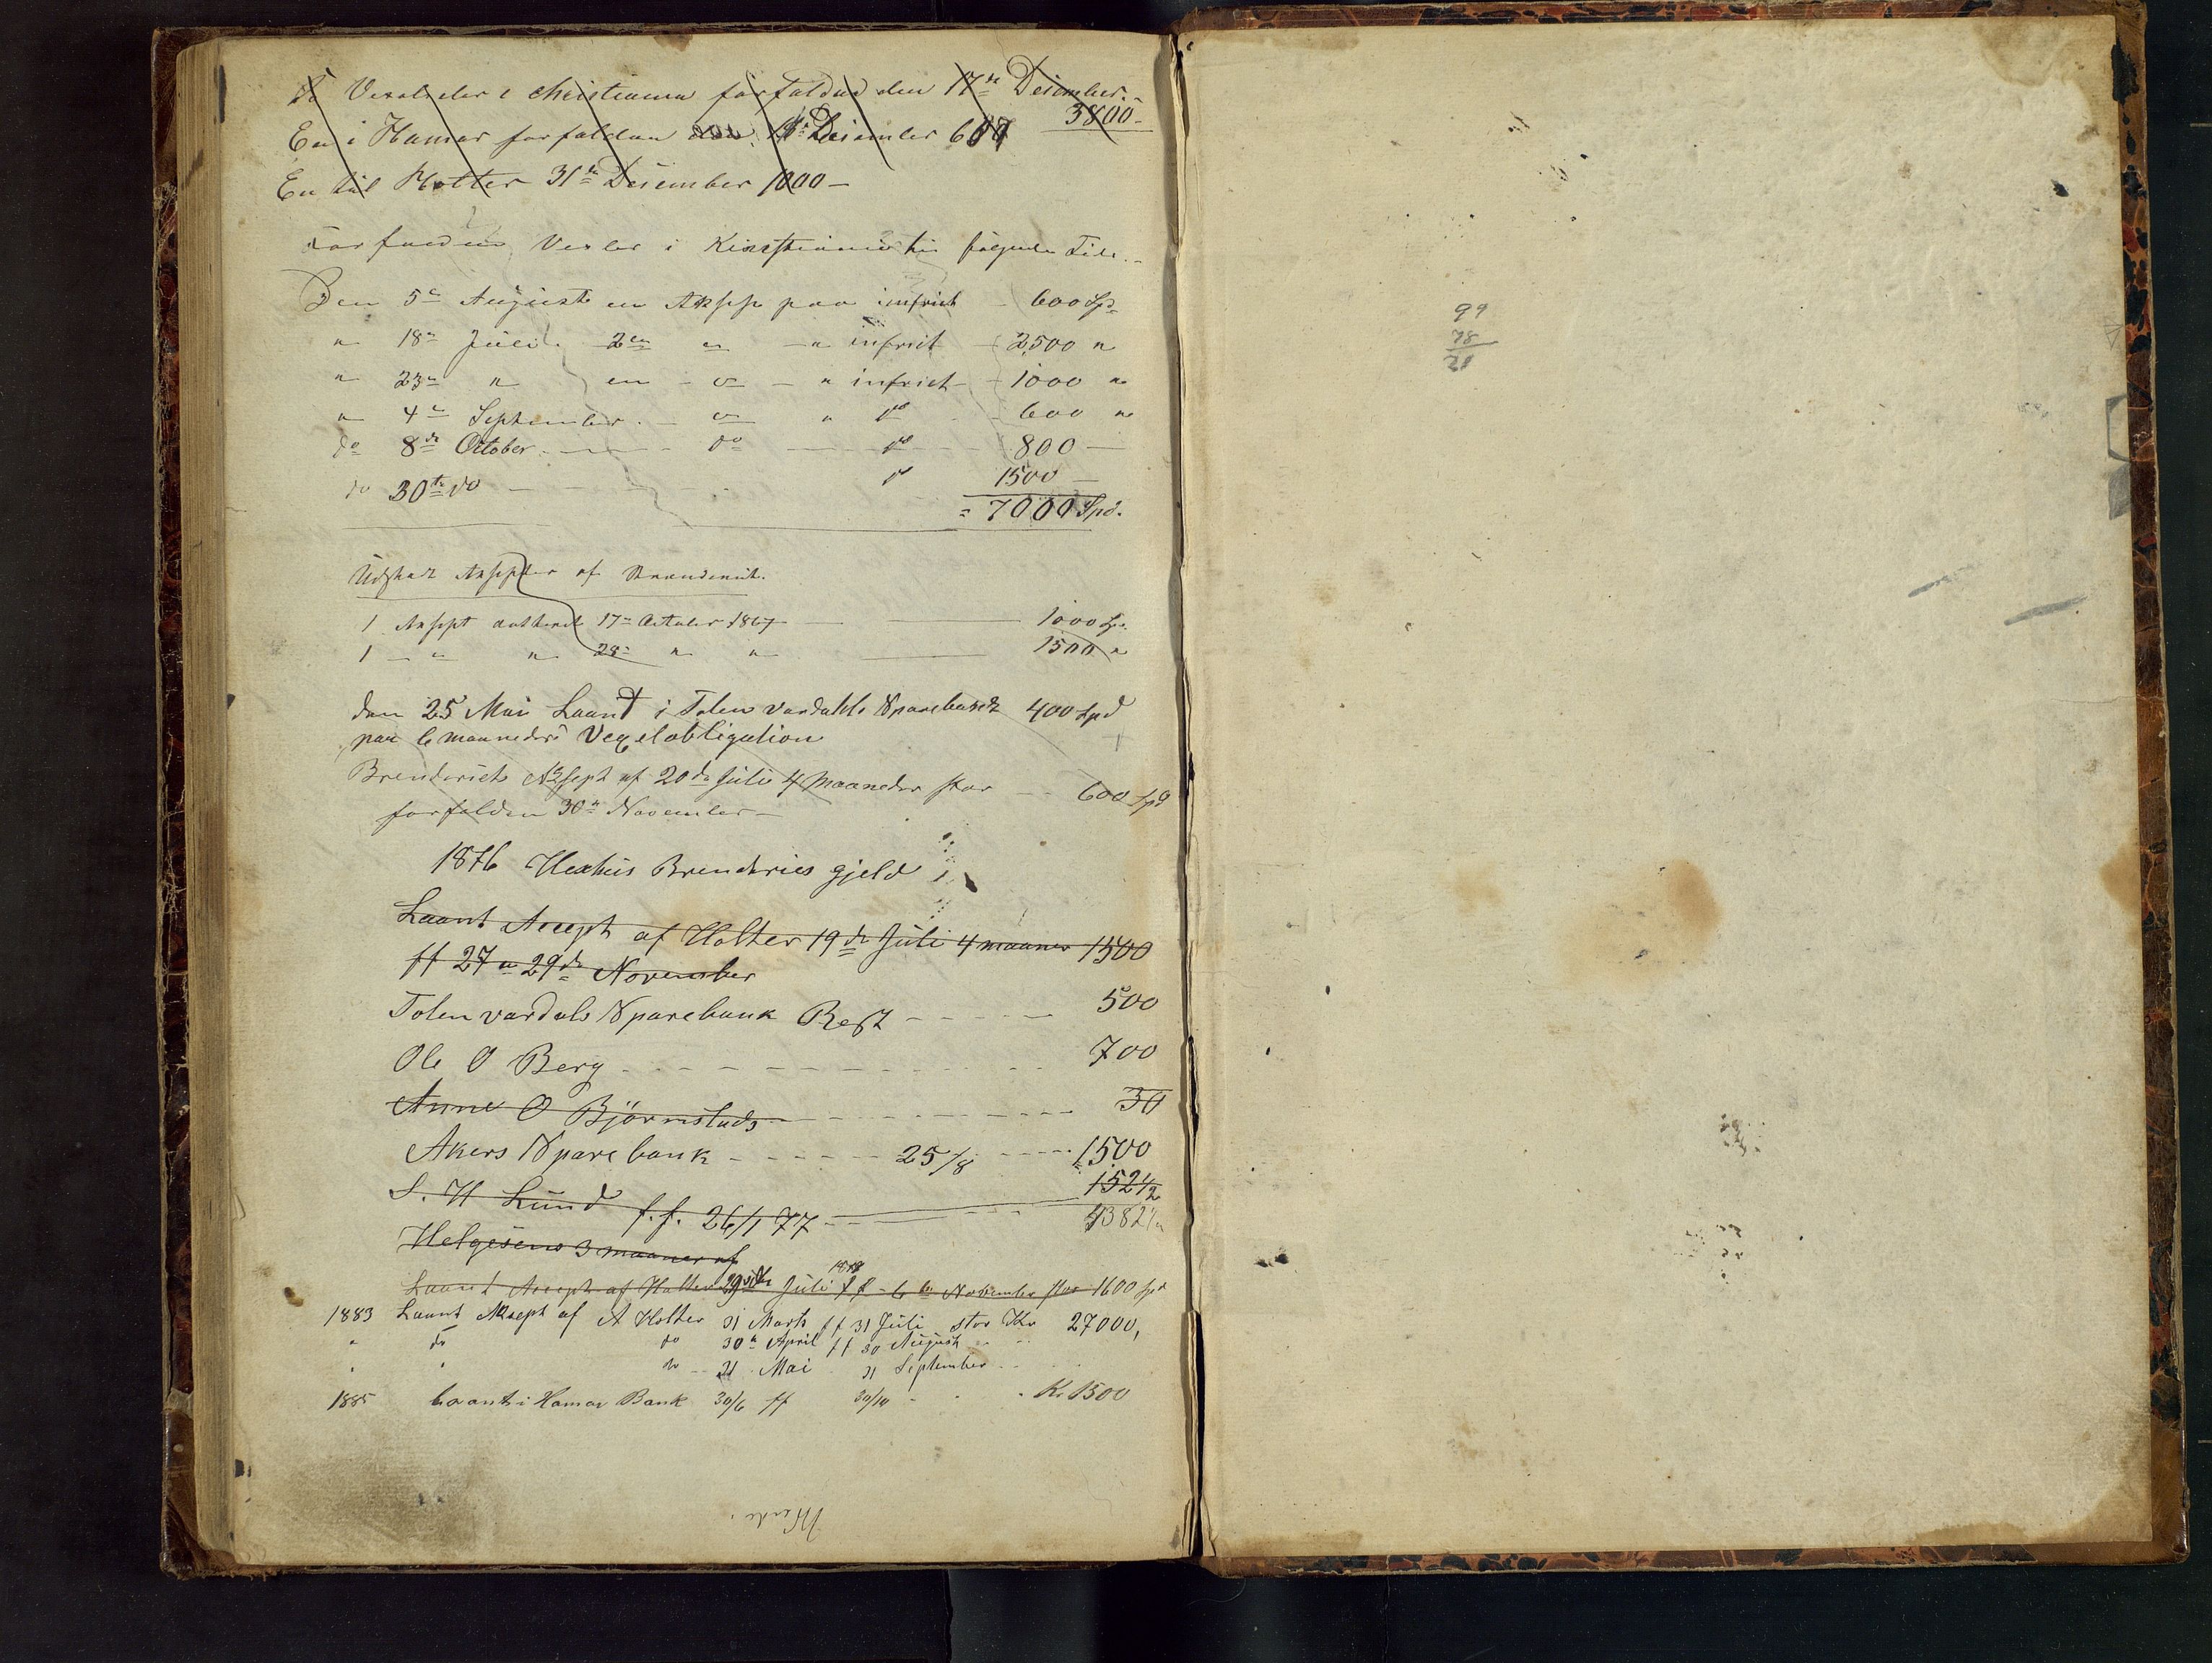 To Vexelseler i Christiania forfalden den 17de Desember.
3800-
En i Hamar forfalden den Desember 600
En til Holter 31te Desember 1000 —
Vexler i Kirstiania til følgende Tide.
Den 5te August en Aksept paa indfriet 600 Sp
" 18de Juli 2en " " indfriet 2500 "
" 23de " en " indfriet 1000 "
" 4de September " do 600 "
do 8de October do do 800 —
do 30te do do 1500 —
= 7000 Spd.
Udstedt Aksepter af
1 Aksept dateret 17de October 1867 1000 Sp.
1 " " 28de " " 1500 "
den 25 Mai Laant i Toten vardahls Sparebank 400 Spd
paa 6 maaneders Vexelobligation
Brenderiets Aksept af 20de Juli 4 Maaneder stor 600 Spd
forfalden 30te November —
1876 Brenderies gjeld
Laant Accept af Holter 19de Juli 4 maaner 1500
ff 27 a 29de November
Toten vardals Sparebank Rest 500
Ole O Berg 700
Anne O Bjørnstuds 30
Akers Sparebank 25/8 1500
S. H Lund f.f. 26/1 77 152 1/2
4382 1/2
Helgesens 3 maaner af
Laant Accept af Holter 29de Juli ff 6te November stor 1600 Spd
1878
1883 Laant Aksept af A Holter 31 Marts ff 31 Juli stor Kr 27000,
" do do 30te April ff 30 August
" " do 31 Mai 31 September
1885 Laant i Hamar Bank 30/6 ff 30/10 Kr 1500
99
78
21